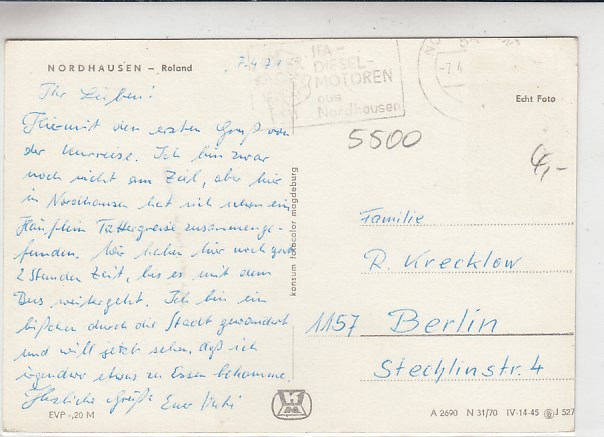 NORDHAUSEN – Roland
7.4.71
IFA -
DIESEL-
MOTOREN
aus
Nordhausen
-7.4
Echt Foto
5500
4,-
Ihr Lieben!
Hiermit den ersten Gruß von
der Kurreise. Ich bin zwar
noch nicht am Ziel, aber hier
in Nordhausen hat sich schon ein
Häuflein Tattergreise zusammenge-
funden. Wir haben hier noch gut
2 Stunden Zeit, bis es mit dem
Bus weitergeht. Ich bin ein
bißchen durch die Stadt gewandert
und will jetzt sehen, daß ich
irgendwo etwas zu Essen bekomme.
Herzliche Grüße Euer
konsum fotocolor magdeburg
Familie
R. Krecklow
1157 Berlin
Stechlinstr. 4
EVP -,20 M
A 2690 N 31/70 IV-14-45 J 527